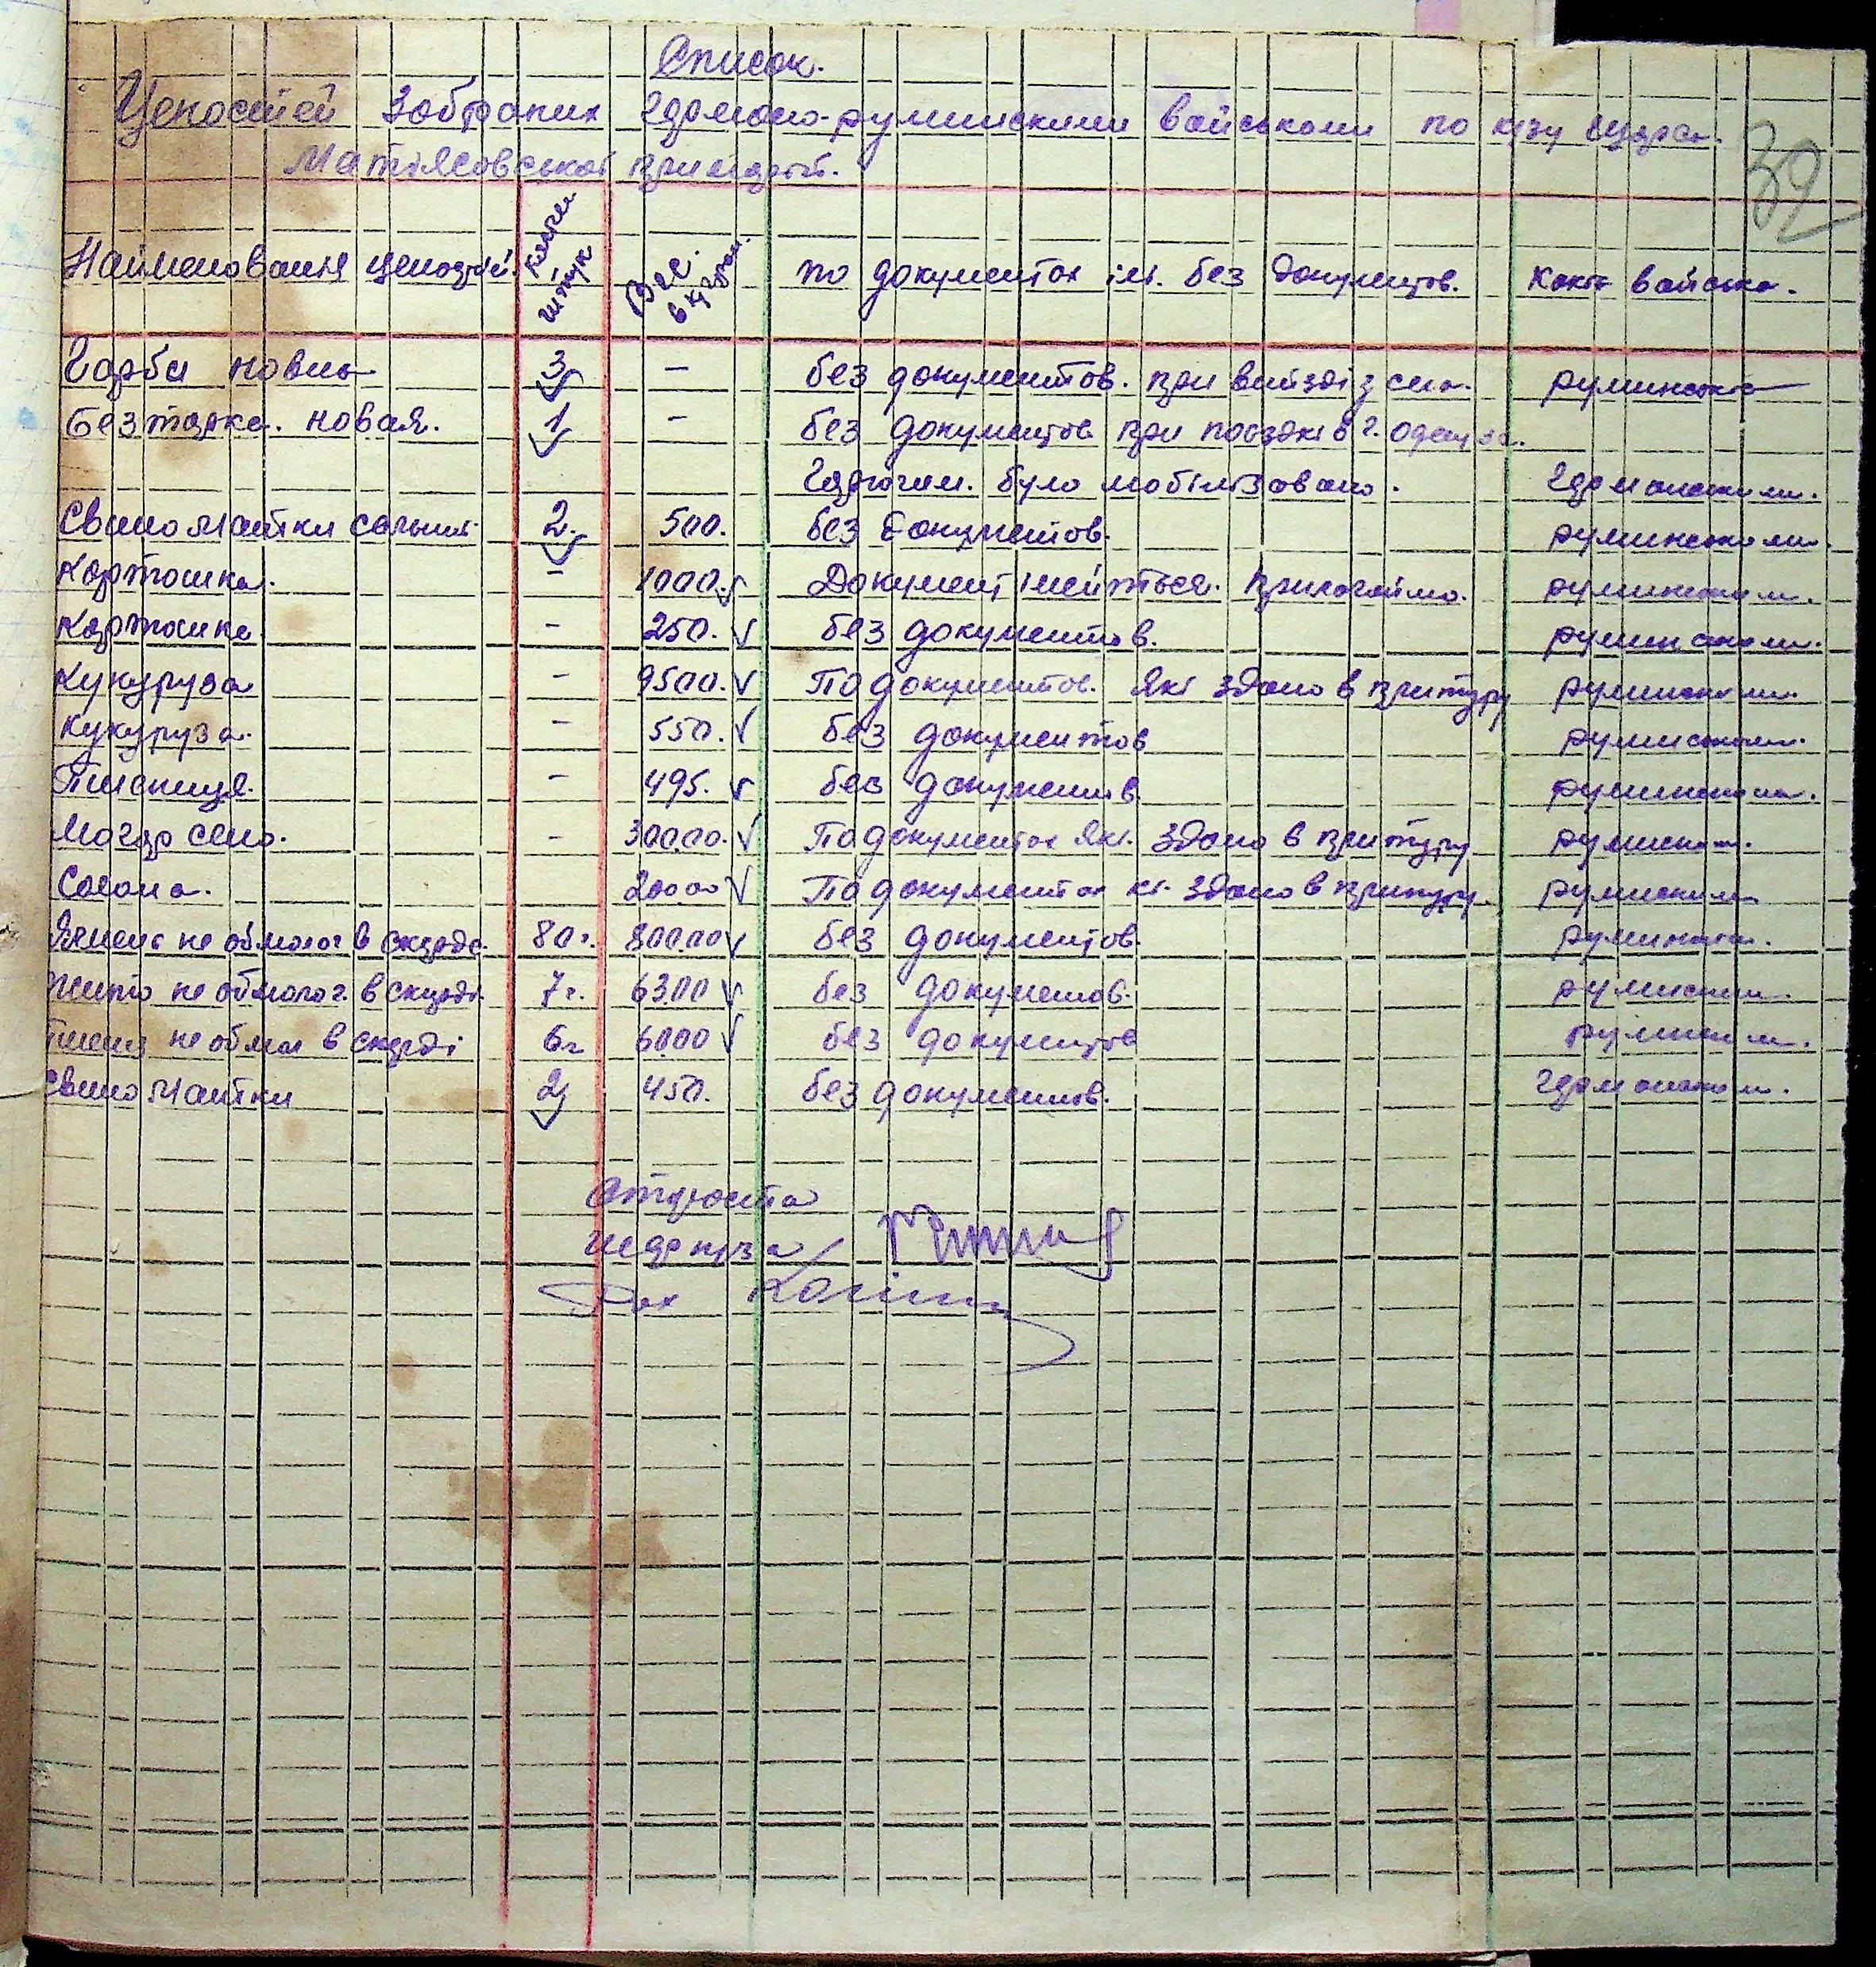 Список.
Ценостей Забраних Германо-руминскими вайськами по к/зу
Матіясовської примарії.
32
Найменования ценостей. Количе штук Вес. в кігграм. по документах ілі. без документов. Какіє вайська.
Гарби нових 3 — без документов. при виїзді з села. руминські
Безтарка. новая. 1 — без документов при поездкі в г. Одесу за.
було мобілізовано. Германськими.
Свино матки сальниє 2. 500. без документов. руминськими.
Картошка. — 1000. Документ імеїться. прилогаїмо. руминськими.
Картошка — 250. без документов. руминськими.
Кукуруза — 9500. По документов. які здано в примару руминськими.
Кукуруза. — 550. без документов руминськими.
Пшениця. — 495. без документов. руминськими.
Могар сено. — 30000. По документах які. здано в примару руминським.
Солома. 20000 По документах кі. здано в примару. руминським
Ячмень не обмолог в скирде. 80г. 80000 без документов. руминским.
Жито не обмолог. в скирді. 7г. 6300 без документов. руминским.
Пшениц не обмол в скирді 6г 6000 без документов руминским.
Свино матки 2 450. без документов. Германським.
Староста
Шефа к/за
Рах